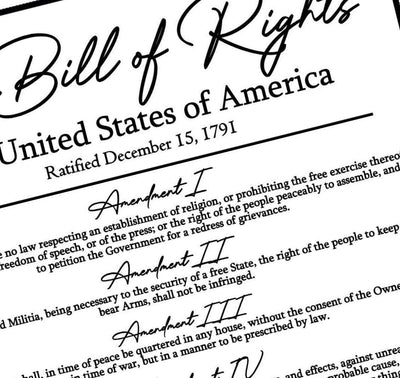 Bill of Rights
United States of America
Ratified December 15, 1791
Amendment I
no law respecting an establishment of religion, or prohibiting the free exercise thereo
freedom of speech, or of the press; or the right of the people peaceably to assemble, and
to petition the Government for a redress of grievances.
Amendment II
d Militia, being necessary to the security of a free State, the right of the people to keep
bear Arms, shall not be infringed.
Amendment III
hall, in time of peace be quartered in any house, without the consent of the Owne
in time of war, but in a manner to be prescribed by law.
Amendment IV
and effects, against unrea
probable cause,